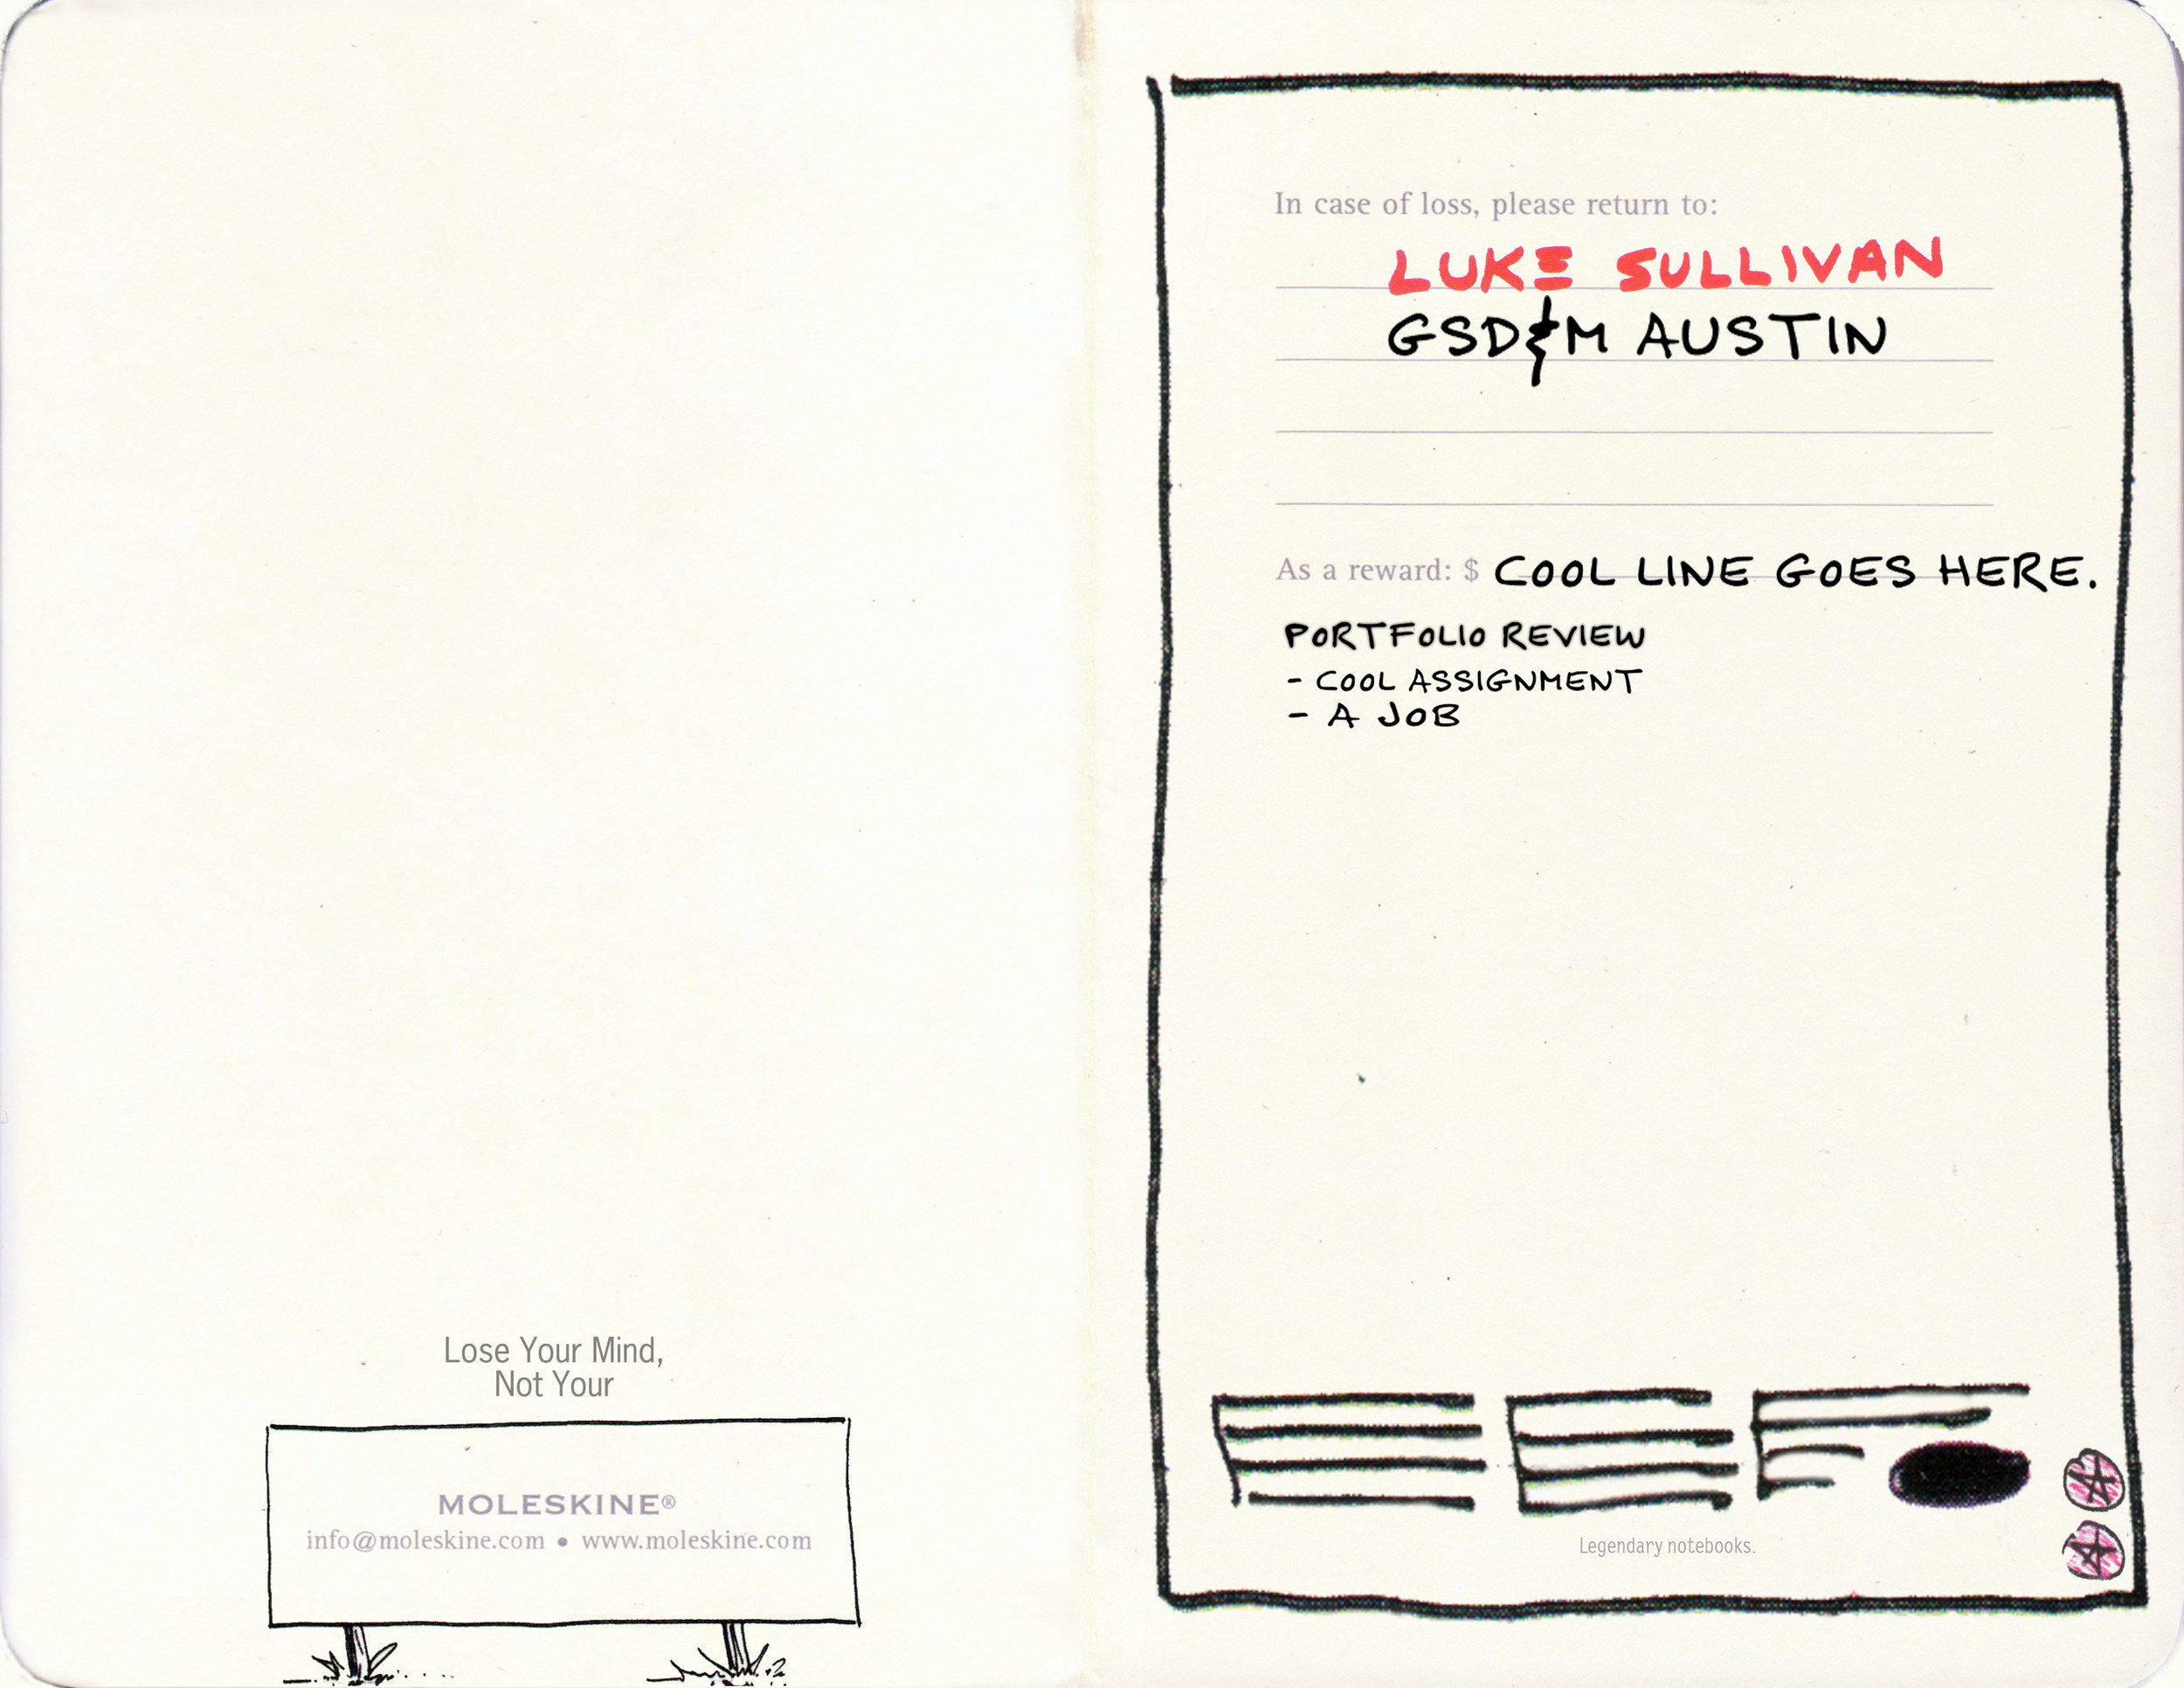 Lose Your Mind,
Not Your
MOLESKINE®
info@moleskine.com • www.moleskine.com
In case of loss, please return to:
LUKE SULLIVAN
GSD&M AUSTIN
As a reward: $ COOL LINE GOES HERE.
PORTFOLIO REVIEW
- COOL ASSIGNMENT
- A JOB
Legendary notebooks.